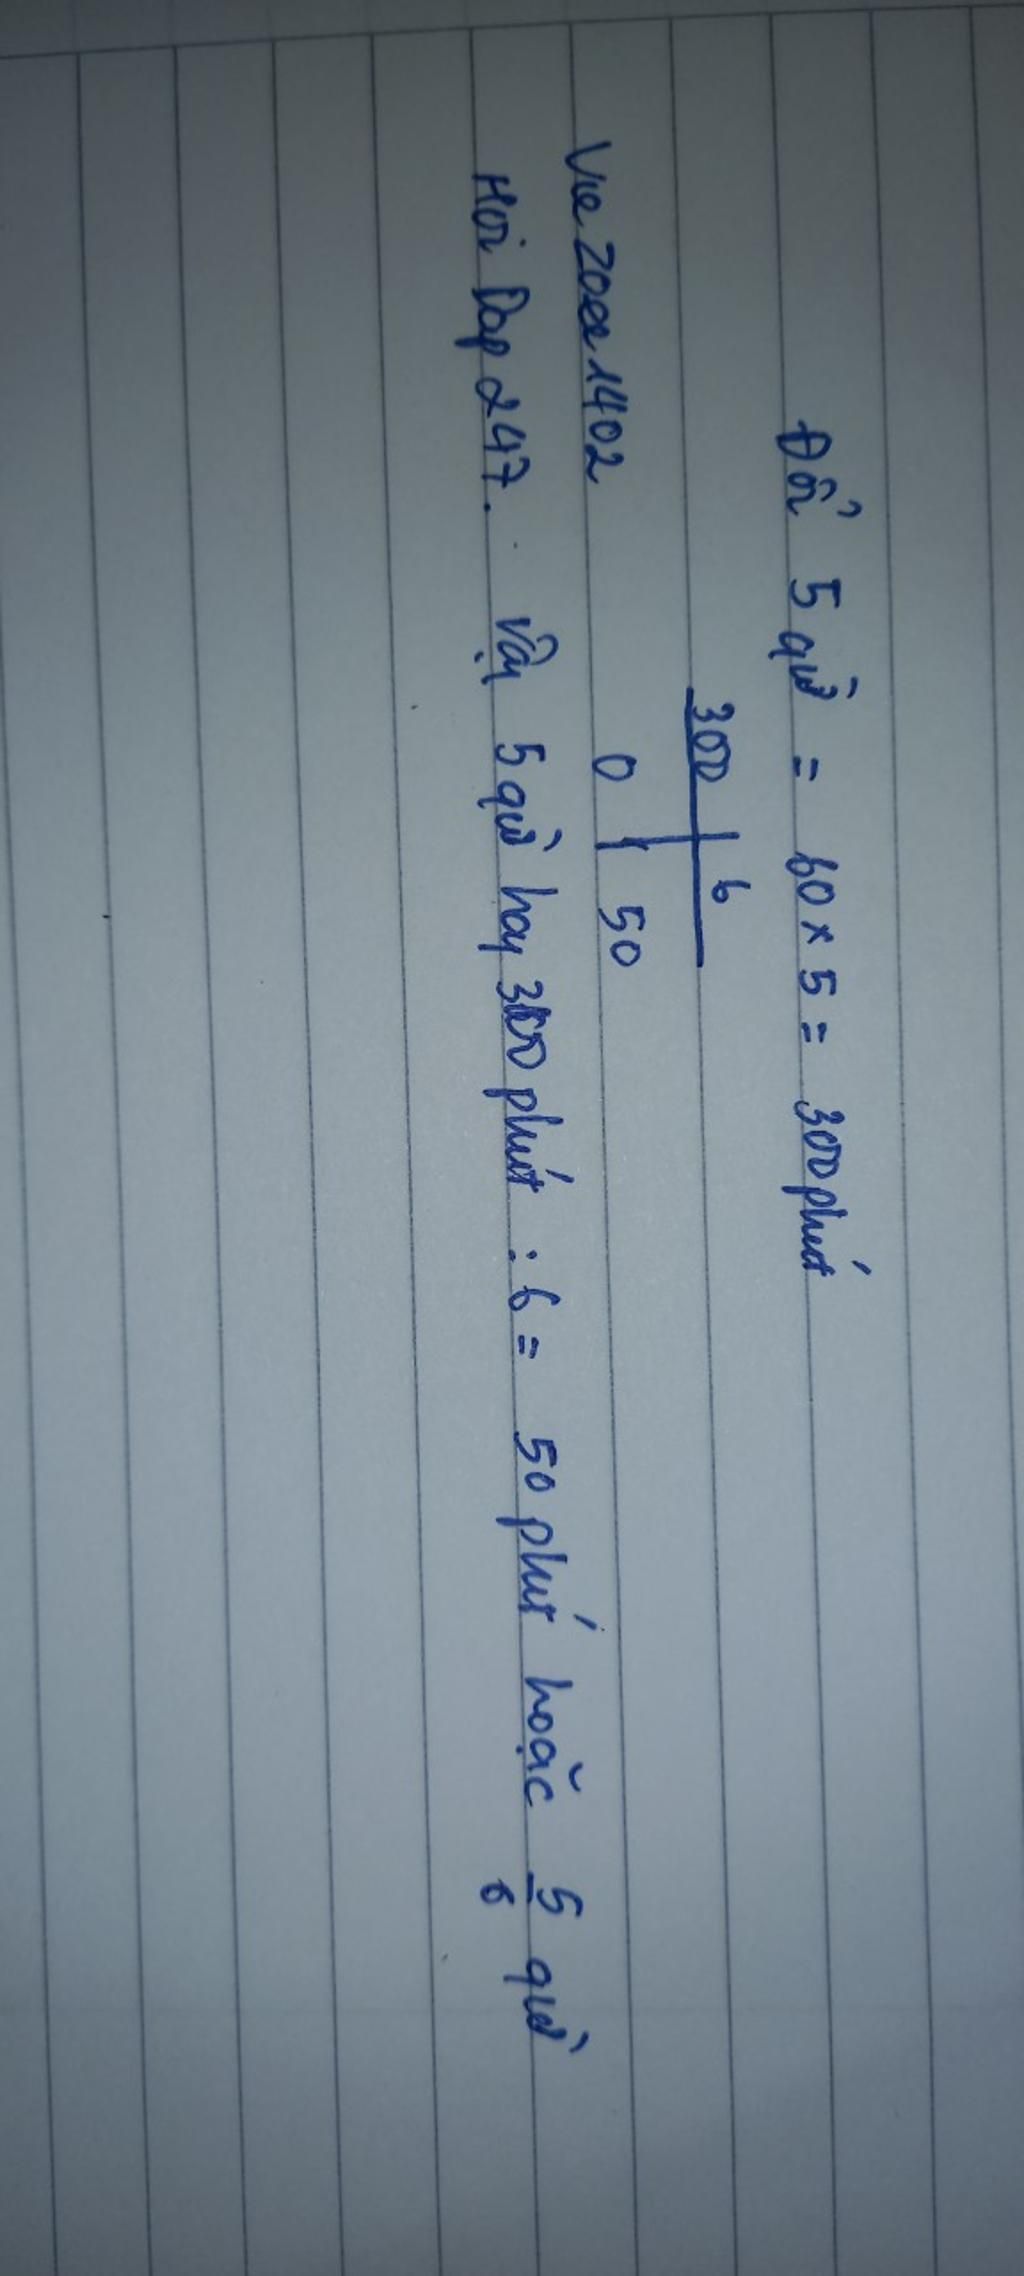 Đổi 5 giờ = 60 x 5 = 300 phút
300 6
0 50
Vie Zoee1402
Hoi Dap 247. Vậy 5 giờ hay 300 phút : 6 = 50 phút hoặc 5/6 giờ